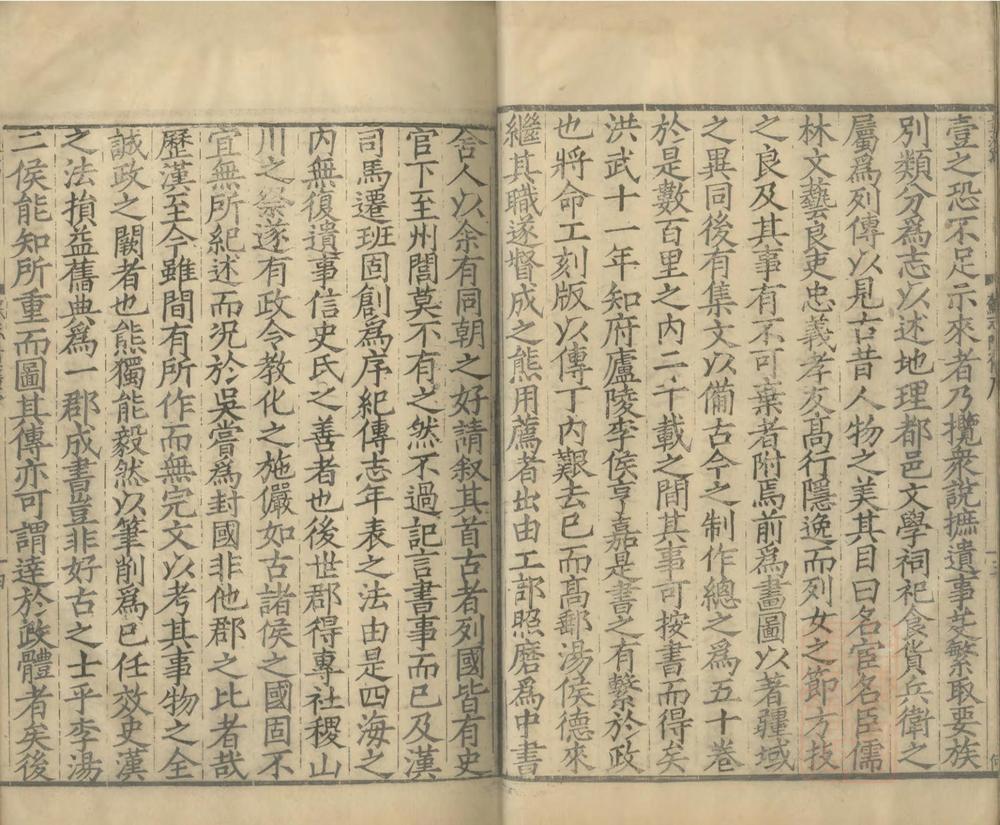 壹之恐不足示來者乃攬衆說摭遺事芟繁取要族
別類分爲志以述地理都邑文學祠祀食貨兵衛之
屬爲列傳以見古昔人物之美其目曰名宦名臣儒
林文藝良吏忠義孝友高行隱逸而列女之節方技
之良及其事有不可棄者附焉前爲畫圖以著疆域
之異同後有集文以備古今之制作總之爲五十卷
於是數百里之內二千載之間其事可按書而得矣
洪武十一年知府盧陵李侯亨嘉是書之有繫於政
也將命工刻版以傳丁內艱去已而髙郵湯侯德來
繼其職遂督成之熊用薦者出由工部照磨爲中書
舍人以余有同朝之好請叙其首古者列國皆有史
官下至州閭莫不有之然不過記言書事而已及漢
司馬遷班固創爲序紀傳志年表之法由是四海之
內無復遺事信史氏之善者也後世郡得專社稷山
川之祭遂有政令教化之施儼如古諸侯之國固不
宜無所紀述而况於吳嘗爲封國非他郡之比者哉
歷漢至今雖間有所作而無完文以考其事物之全
誠政之闕者也熊獨能毅然以筆削爲已任效史漢
之法損益舊典爲一郡成書豈非好古之士乎李湯
二侯能知所重而圖其傳亦可謂達於政體者矣後